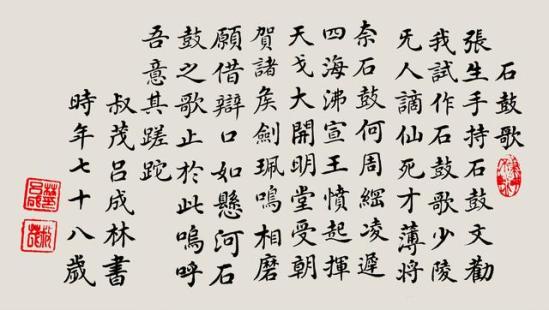 石鼓歌
張生手持石鼓文勸
我試作石鼓歌少陵
无人謫仙死才薄將
奈石鼓何周綱凌遲
四海沸宣王憤起揮
天戈大開明堂受朝
賀諸侯劍珮鳴相磨
願借辯口如懸河石
鼓之歌止於此嗚呼
吾意其蹉跎
叔茂呂成林書
時年七十八歲